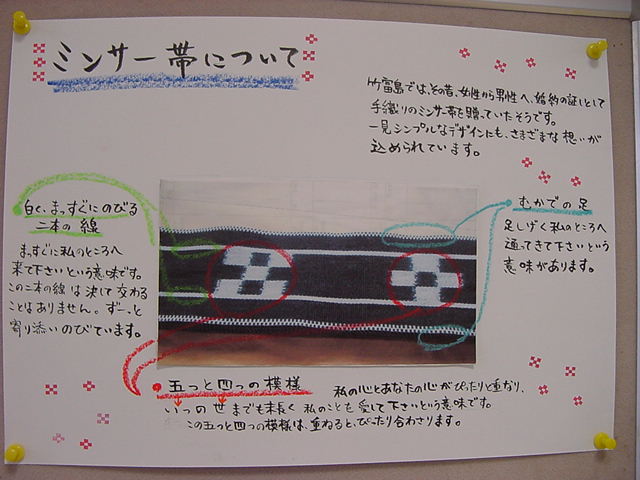 ミンサー帯について
竹富島では、その昔、女性から男性へ、婚約の証しとして
手織りのミンサー帯を贈っていたそうです。
一見シンプルなデザインにも、さまざまな想いが
込められています。
白く、まっすぐにのびる
二本の線
まっすぐに私のところへ
来て下さいという意味です。
この二本の線は決して交わる
ことはありません。ずーっと
寄り添いのびています。
むかでの足
足しげく私のところへ
通ってきて下さいという
意味があります。
五つと四つの模様
私の心とあなたの心がぴったりと重なり、
いつの世までも末長く私のことを愛して下さいという意味です。
この五つと四つの模様は、重ねると、ぴったり合わさります。